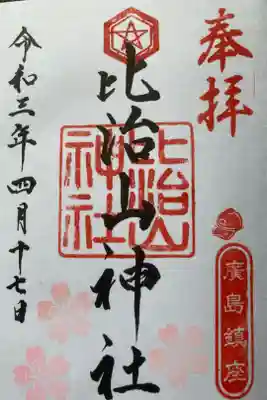 奉拝
廣島鎮座
比治山神社
比治山神社
令和三年四月十七日